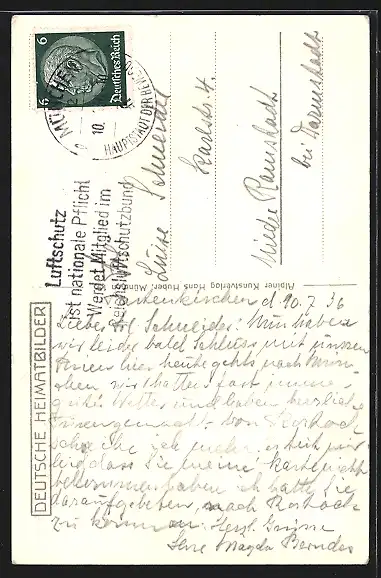 DEUTSCHE HEIMATBILDER
Alpiner Kunstverlag Hans Huber,
6
6
Deutsches Reich
MÜNCHEN
10
HAUPTSTADT DER BEWEGUNG
Luftschutz
ist nationale Pflicht
Werdet Mitglied im
Reichsluftschutzbund
Luise Schneider
Karlstr 4.
Nieder Ramstadt
bei Darmstadt
Partenkirchen d. 10. 7 36
Liebes Frl. Schneider! Nun haben
wir leider bald Schluss mit unsern
Ferien hier heute gehts nach Mün-
chen wir hatten fast immer
gutes Wetter und haben herrlich
Touren gemacht. Von Rostock
schreibe ich mehr, es tut mir
leid dass Sie meine Karte nicht
bekommen haben ich hatte Sie
darauf gebeten, nach Rostock
zu kommen. Herzl Grüsse
Ihre Magda Berndes